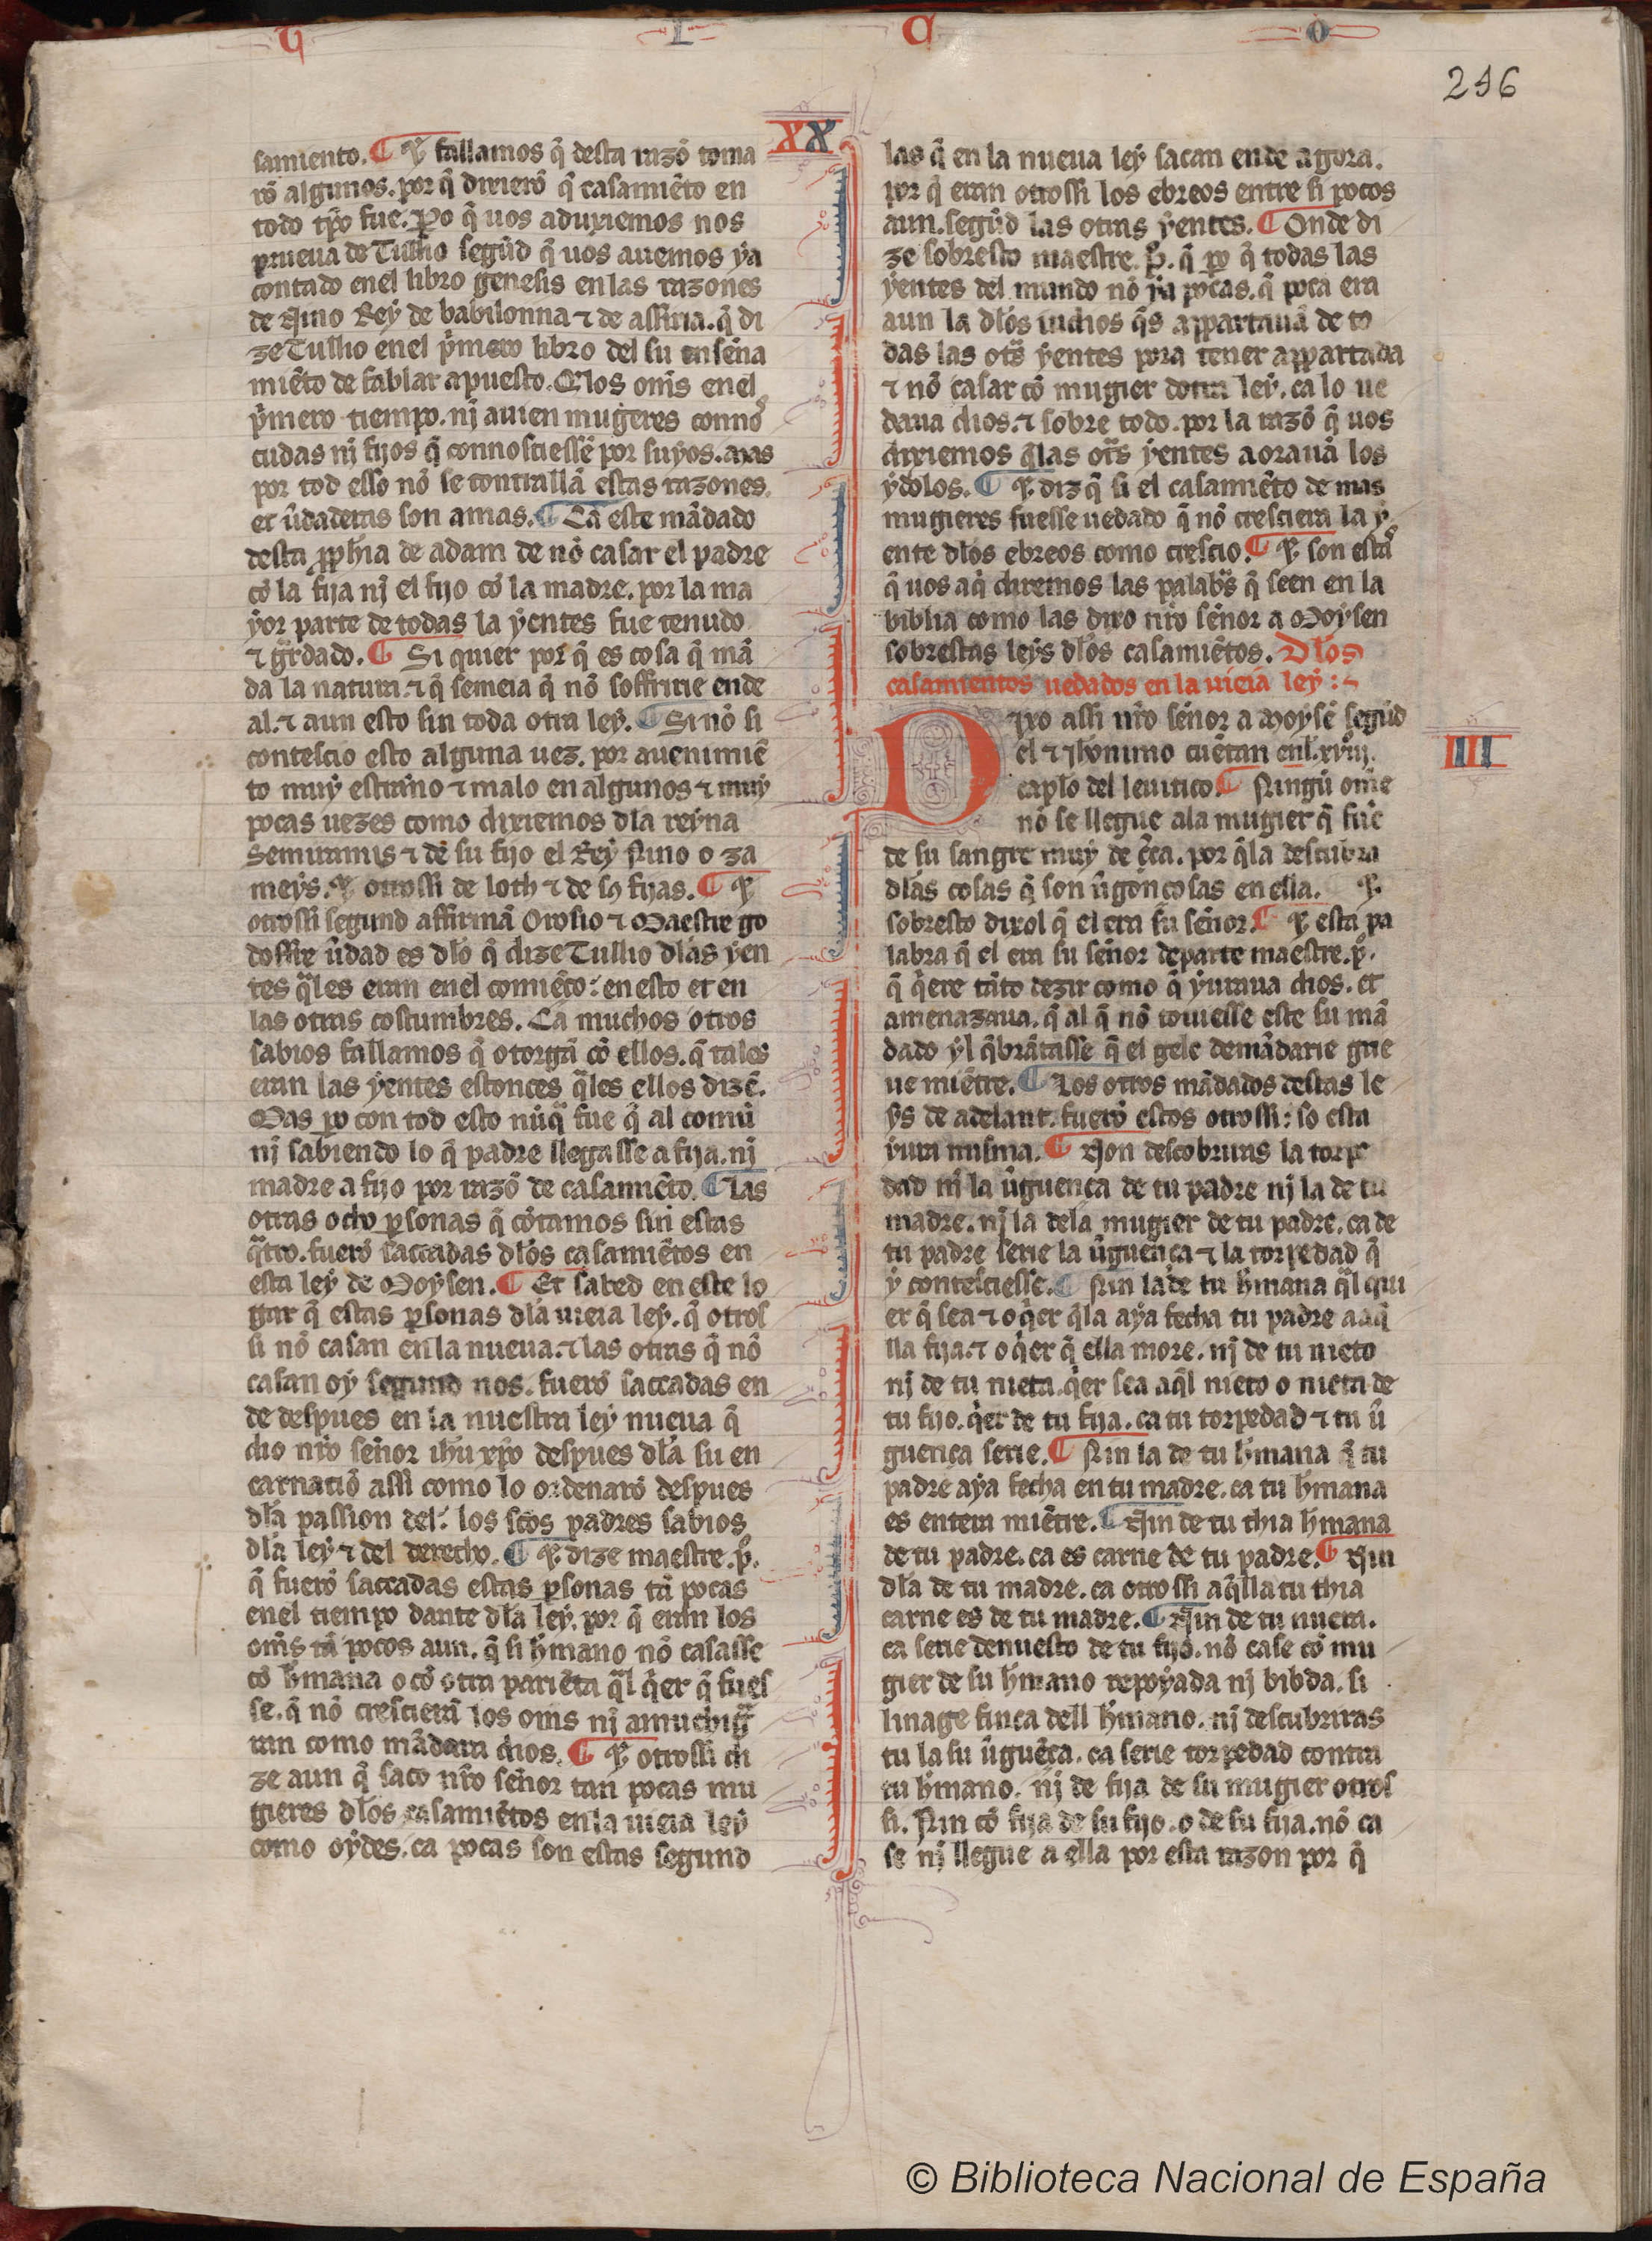 T I C O
296
XX
samiento. ¶ Et fallamos q̃ desta razõ toma
rõ algunos. por q̃ dixierõ q̃ casamiẽto en
todo tp̃o fue. Po q̃ uos aduxiemos nos
prueua de Tullio segũd q̃ uos auemos ya
contado enel libro genesis enlas razones
de Nino Rey de babilonna ⁊ de assiria. q̃ di
ze Tullio enel p̃mero libro del su ensẽna
miẽto de fablar apuesto. Qlos om̃s enel
p̃mero tiempo. nj auien mugeres conno
çudas nj fijos q̃ connosciessẽ por suyos. mas
por tod esso nõ se contrallã estas razones.
et ũdaderas son amas. ¶ Ca este mãdado
desta pphia de adam de nõ casar el padre
cõ la fija nj el fijo cõ la madre. por la ma
yor parte de todas la yentes fue tenudo
⁊ gr̃dado. ¶ Si quier por q̃ es cosa q̃ mã
da la natura. ⁊ q̃ semeia q̃ nõ soffririe ende
al. ⁊ aun esto sin toda otra ley. ¶ Si nõ si
contescio esto alguna uez. por auenimiẽ
to muy estranno ⁊ malo en algunos ⁊ muy
pocas uezes como dixiemos dla reyna
Semiramis ⁊ de su fijo el Rey Nino o za
meys. Et otrossi de loth ⁊ de sus fijas. ¶ Et
otrossi segund affirmã Orosio ⁊ Maestre go
dofre ũdad es dlo q̃ dize Tullio dlas yen
tes q̃les eran enel comiẽço: en esto et en
las otras costumbres. Ca muchos otros
sabios fallamos q̃ otorgã cõ ellos. q̃ tales
eran las yentes estonces q̃les ellos dizẽ.
Mas po con tod esto nũq̃ fue q̃ al comũ
nj sabiendo lo q̃ padre llegasse a fija. nj
madre a fijo por razõ de casamiẽto. ¶ Las
otras ocho psonas q̃ cõtamos sin estas
q̃tro. fuerõ saccadas dlos casamiẽtos en
esta ley de Moysen. ¶ Et sabed en este lo
gar q̃ estas psonas dla uieia ley. q̃ otros
si nõ casan en la nueua. ⁊ las otras q̃ nõ
casan oy segund nos. fuerõ saccadas en
de despues en la nuestra ley nueua q̃
dio nr̃o señor ihũ xp̃o despues dla su en
carnatiõ assi como lo ordenarõ despues
dla passion del: los sc̃os padres sabios
dla ley ⁊ del derecho. ¶ Et dize maestre .p̃.
q̃ fuerõ saccadas estas psonas tã pocas
enel tiempo dante dla ley. por q̃ eran los
om̃s tã pocos aun. q̃ si h̃mano nõ casasse
cõ h̃mana o cõ otra pariẽta q̃l q̃er q̃ fues
se. q̃ nõ crescierã los om̃s nj amuchigua
ran como mãdara dios. ¶ Et otrossi di
ze aun q̃ saco nr̃o señor tan pocas mu
gieres dlos casamiẽtos en la uieia ley
como oydes. ca pocas son estas segund
las q̃ en la nueua ley sacan ende agora.
por q̃ eran otrossi los ebreos entre si pocos
aun. segũd las otras yentes. ¶ Onde di
ze sobresto maestre .p̃. q̃ po q̃ todas las
yentes del mundo nõ ya pocas. q̃ poca era
aun la dlos iudios q̃s appartauã de to
das las otras yentes pora tener appartada
⁊ nõ casar cõ mugier dotra ley. ca lo ue
daua dios. ⁊ sobre todo. por la razõ q̃ uos
dixiemos q̃las otras yentes aorauã los
ydolos. ¶ Et diz q̃ si el casamiẽto de mas
mugieres fuesse uedado q̃ nõ cresciera la y
ente dlos ebreos como crescio. ¶ Et son estas
q̃ uos aq̃ diremos las palabras q̃ seen en la
biblia como las dixo nr̃o señor a Moysen
sobrestas leys dlos casamiẽtos. Dlos
casamientos uedados en la uieia ley:
III
Dixo assi nr̃o señor a moysẽ segũd
el ⁊ Jheronimo cuẽtan enl .xviij.
cap̃lo del leuitico. ¶ Ningũ om̃e
nõ se llegue ala mugier q̃ fue
de su sangre muy de c̃ca. por q̃la descubra
dlas cosas q̃ son ũgonçosas en ella. Et
sobresto dixol q̃ el era su señor. ¶ Et esta pa
labra q̃ el era su señor departe maestre .p̃.
q̃ q̃ere tãto dezir como q̃ yuraua dios. et
amenazaua. q̃ al q̃ nõ touiesse este su mã
dado yl q̃brãtasse q̃ el gele demãdarie grie
ue miẽtre. ¶ Los otros mãdados destas le
ys de adelant. fuerõ estos otrossi: so esta
yura misma. ¶ Non descobriras la torpe
dad nj la ũguença de tu padre nj la de tu
madre. nj la dela mugier de tu padre. ca de
tu padre serie la ũguença ⁊ la torpedad q̃
y contesciesse. ¶ Nin la de tu h̃mana q̃l qui
er q̃ sea ⁊ o q̃er q̃la aya fecha tu padre a aq̃
lla fija. ⁊ o q̃er q̃ ella more. nj de tu nieto
nj de tu nieta. q̃er sea aq̃l nieto o nieta de
tu fijo. q̃er de tu fija. ca tu torpedad ⁊ tu ũ
guença serie. ¶ Nin la de tu h̃mana q̃ tu
padre aya fecha en tu madre. ca tu h̃mana
es entera miẽtre. ¶ Nin de tu thia h̃mana
de tu padre. ca es carne de tu padre. ¶ Nin
dla de tu madre. ca otrossi aq̃lla tu thia
carne es de tu madre. ¶ Nin de tu nuera.
ca serie denuesto de tu fijo. nõ case cõ mu
gier de su h̃mano repoyada nj bibda. si
linage finca dell h̃mano. nj descubriras
tu la su ũguẽça. ca serie torpedad contra
tu h̃mano. nj de fija de su mugier otros
si. Nin cõ fija de su fijo. o de su fija. nõ ca
se nj llegue a ella por esta razon por q̃
© Biblioteca Nacional de España